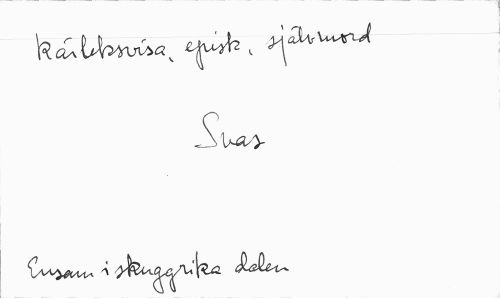 Kärleksvisa, episk, självmord
Svas
Ensam i skuggrika dalen